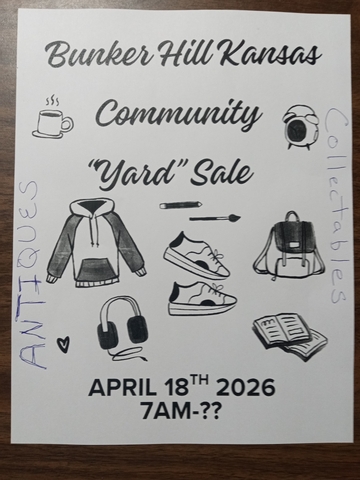 Bunker Hill Kansas
Community
"Yard" Sale
ANTIQUES
Collectables
APRIL 18TH 2026
7AM-??